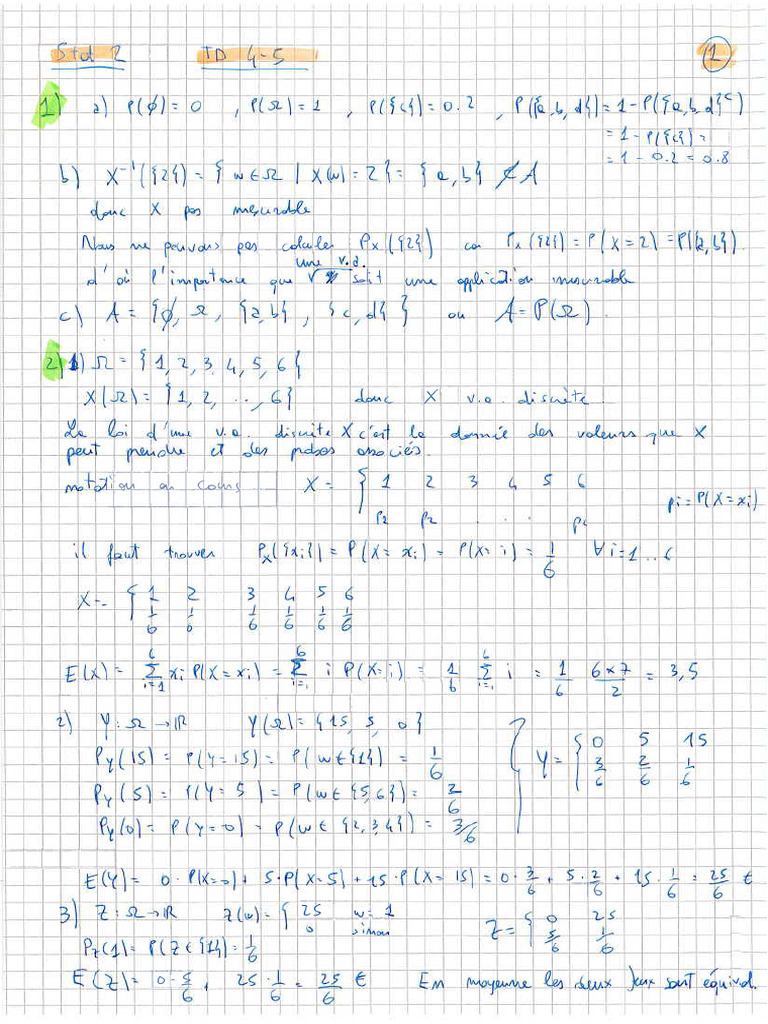 Stat 2 TD 4-5 1
1) a) P(∅) = 0 , P(Ω) = 1 , P({c}) = 0.2 , P({a,b,d}) = 1 - P({a,b,d}ᶜ)
= 1 - P({c}) =
= 1 - 0.2 = 0.8
b) X⁻¹({2}) = { w ∈ Ω | X(w) = 2 } = { a, b } ∉ A
donc X pas mesurable
Nous ne pouvons pas calculer P_X({2}) car P_X({2}) = P(X = 2) = P({a,b})
d'où l'importance que une v.a. soit une application mesurable
c) A = { ∅, Ω, {a,b}, {c,d} } ou A = P(Ω).
2) 1) Ω = { 1, 2, 3, 4, 5, 6 }
X(Ω) = { 1, 2, .., 6 } donc X v.a. discrète.
La loi d'une v.a. discrète X c'est la donnée des valeurs que X
peut prendre et des probas associés.
notation en cours X = { 1 2 3 4 5 6
p2 p2 . . . p6 pi = P(X = xi)
il faut trouver P_X({xi}) = P(X = xi) = P(X = i) = 1/6 ∀ i = 1 .. 6
X = { 1 2 3 4 5 6
1/6 1/6 1/6 1/6 1/6 1/6
E(X) = Σ_{i=1}^{6} xi P(X = xi) = Σ_{i=1}^{6} i P(X = i) = 1/6 Σ_{i=1}^{6} i = 1/6 6×7/2 = 3,5
2) Y : Ω → ℝ Y(Ω) = { 15, 5, 0 }
P_Y(15) = P(Y = 15) = P(w ∈ {1}) = 1/6
P_Y(5) = P(Y = 5) = P(w ∈ {5,6}) = 2/6
P_Y(0) = P(Y = 0) = P(w ∈ {2,3,4}) = 3/6
Y = { 0 5 15
3/6 2/6 1/6
E(Y) = 0 · P(X=0) + 5 · P(X=5) + 15 · P(X = 15) = 0 · 3/6 + 5 · 2/6 + 15 · 1/6 = 25/6 €
3) Z : Ω → ℝ Z(w) = { 25 w = 1
0 sinon
Z = { 0 25
5/6 1/6
P_Z(1) = P(Z ∈ {1}) = 1/6
E(Z) = 0 · 5/6 + 25 · 1/6 = 25/6 € En moyenne les deux jeux sont équival.